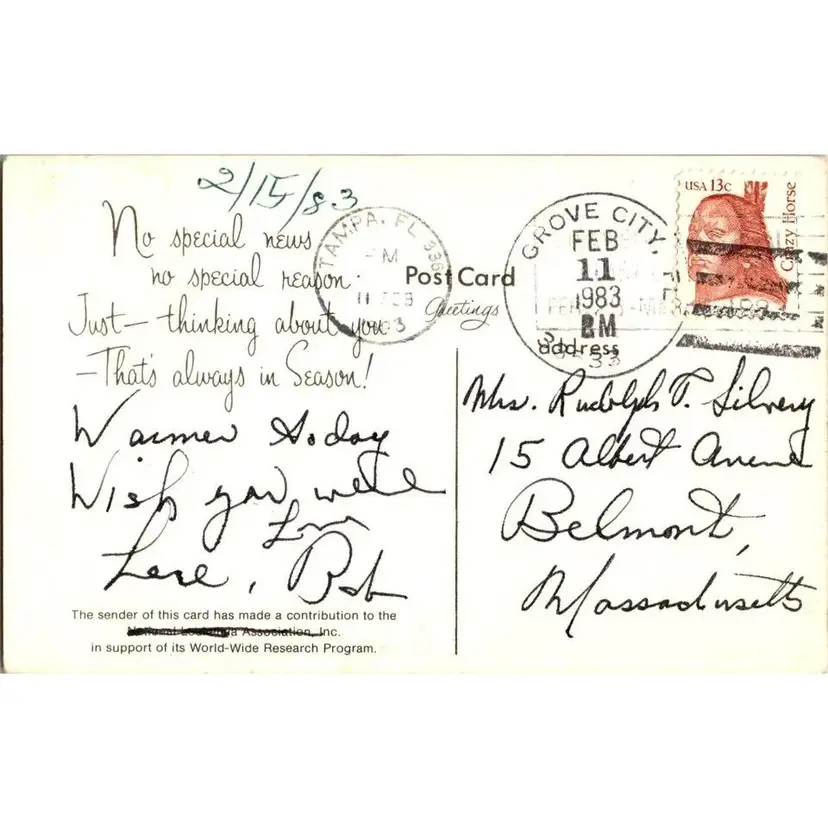 2/15/83
No special news
no special reason.
Just — thinking about you
— That's always in Season!
Warmer today
Wish you were
here,
Love
Bob
The sender of this card has made a contribution to the
National Leukemia Association, Inc.
in support of its World-Wide Research Program.
TAMPA, FL 336
PM
11 FEB
Post Card
Greetings
address
GROVE CITY, FL
FEB
11
1983
PM
USA 13c
Crazy Horse
Mrs. Rudolph T. Silvery
15 Albert Avenue
Belmont,
Massachusetts